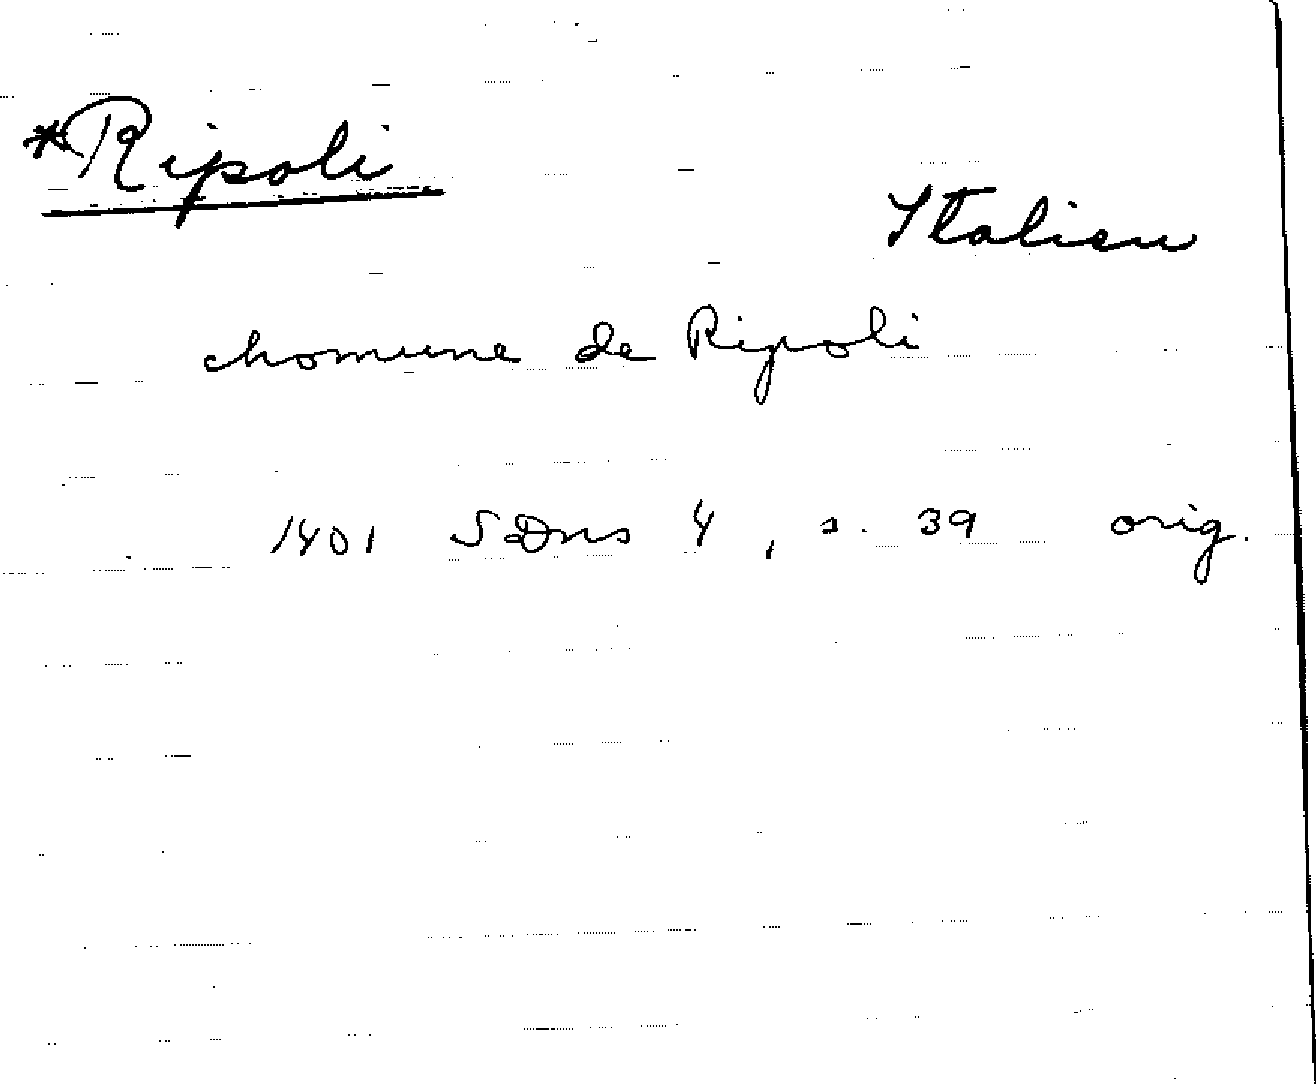 *Ripoli
Italien
chomune de Ripoli
1401 SDns 4, s. 39 orig.